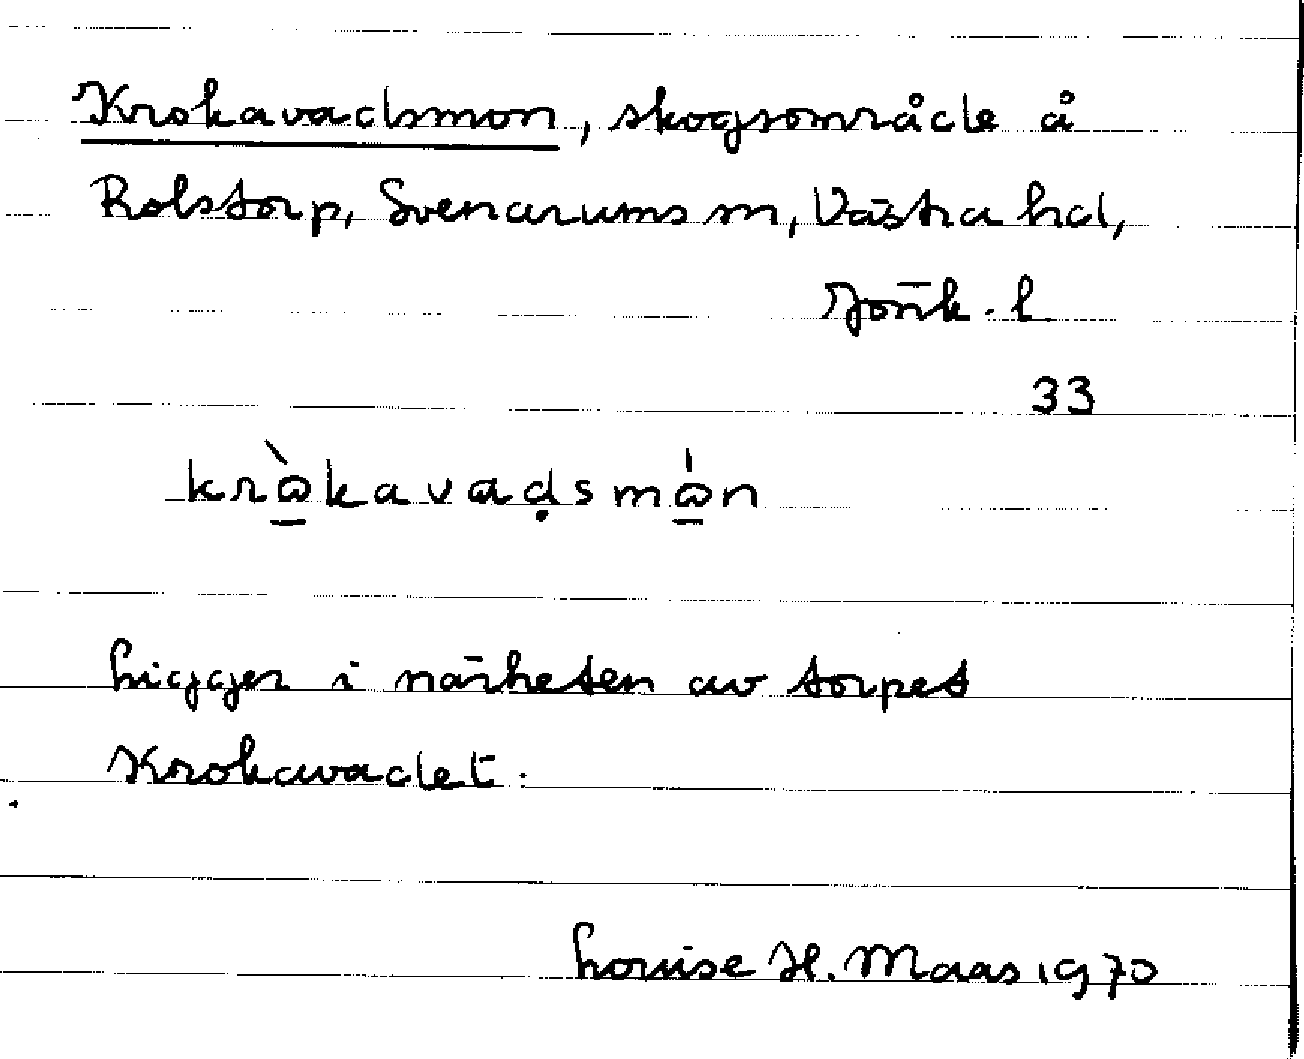 Krokavadsmon, skogsområde å
Rolstorp, Svenarums sn, Västra hd,
Jönk. l
33
krɷ̀kavadsmɷ́n
Ligger i närheten av torpet
Krokavadet.
Louise H. Maas 1970